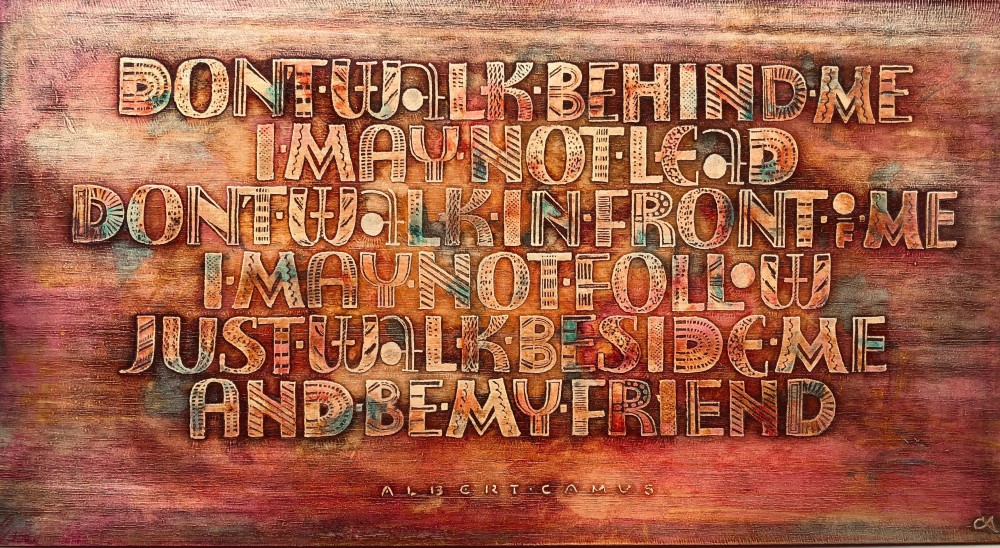 DON'T·WALK·BEHIND·ME
I·MAY·NOT·LEAD
DON'T·WALK·IN·FRONT·OF·ME
I·MAY·NOT·FOLLOW
JUST·WALK·BESIDE·ME
AND·BE·MY·FRIEND
ALBERT·CAMUS